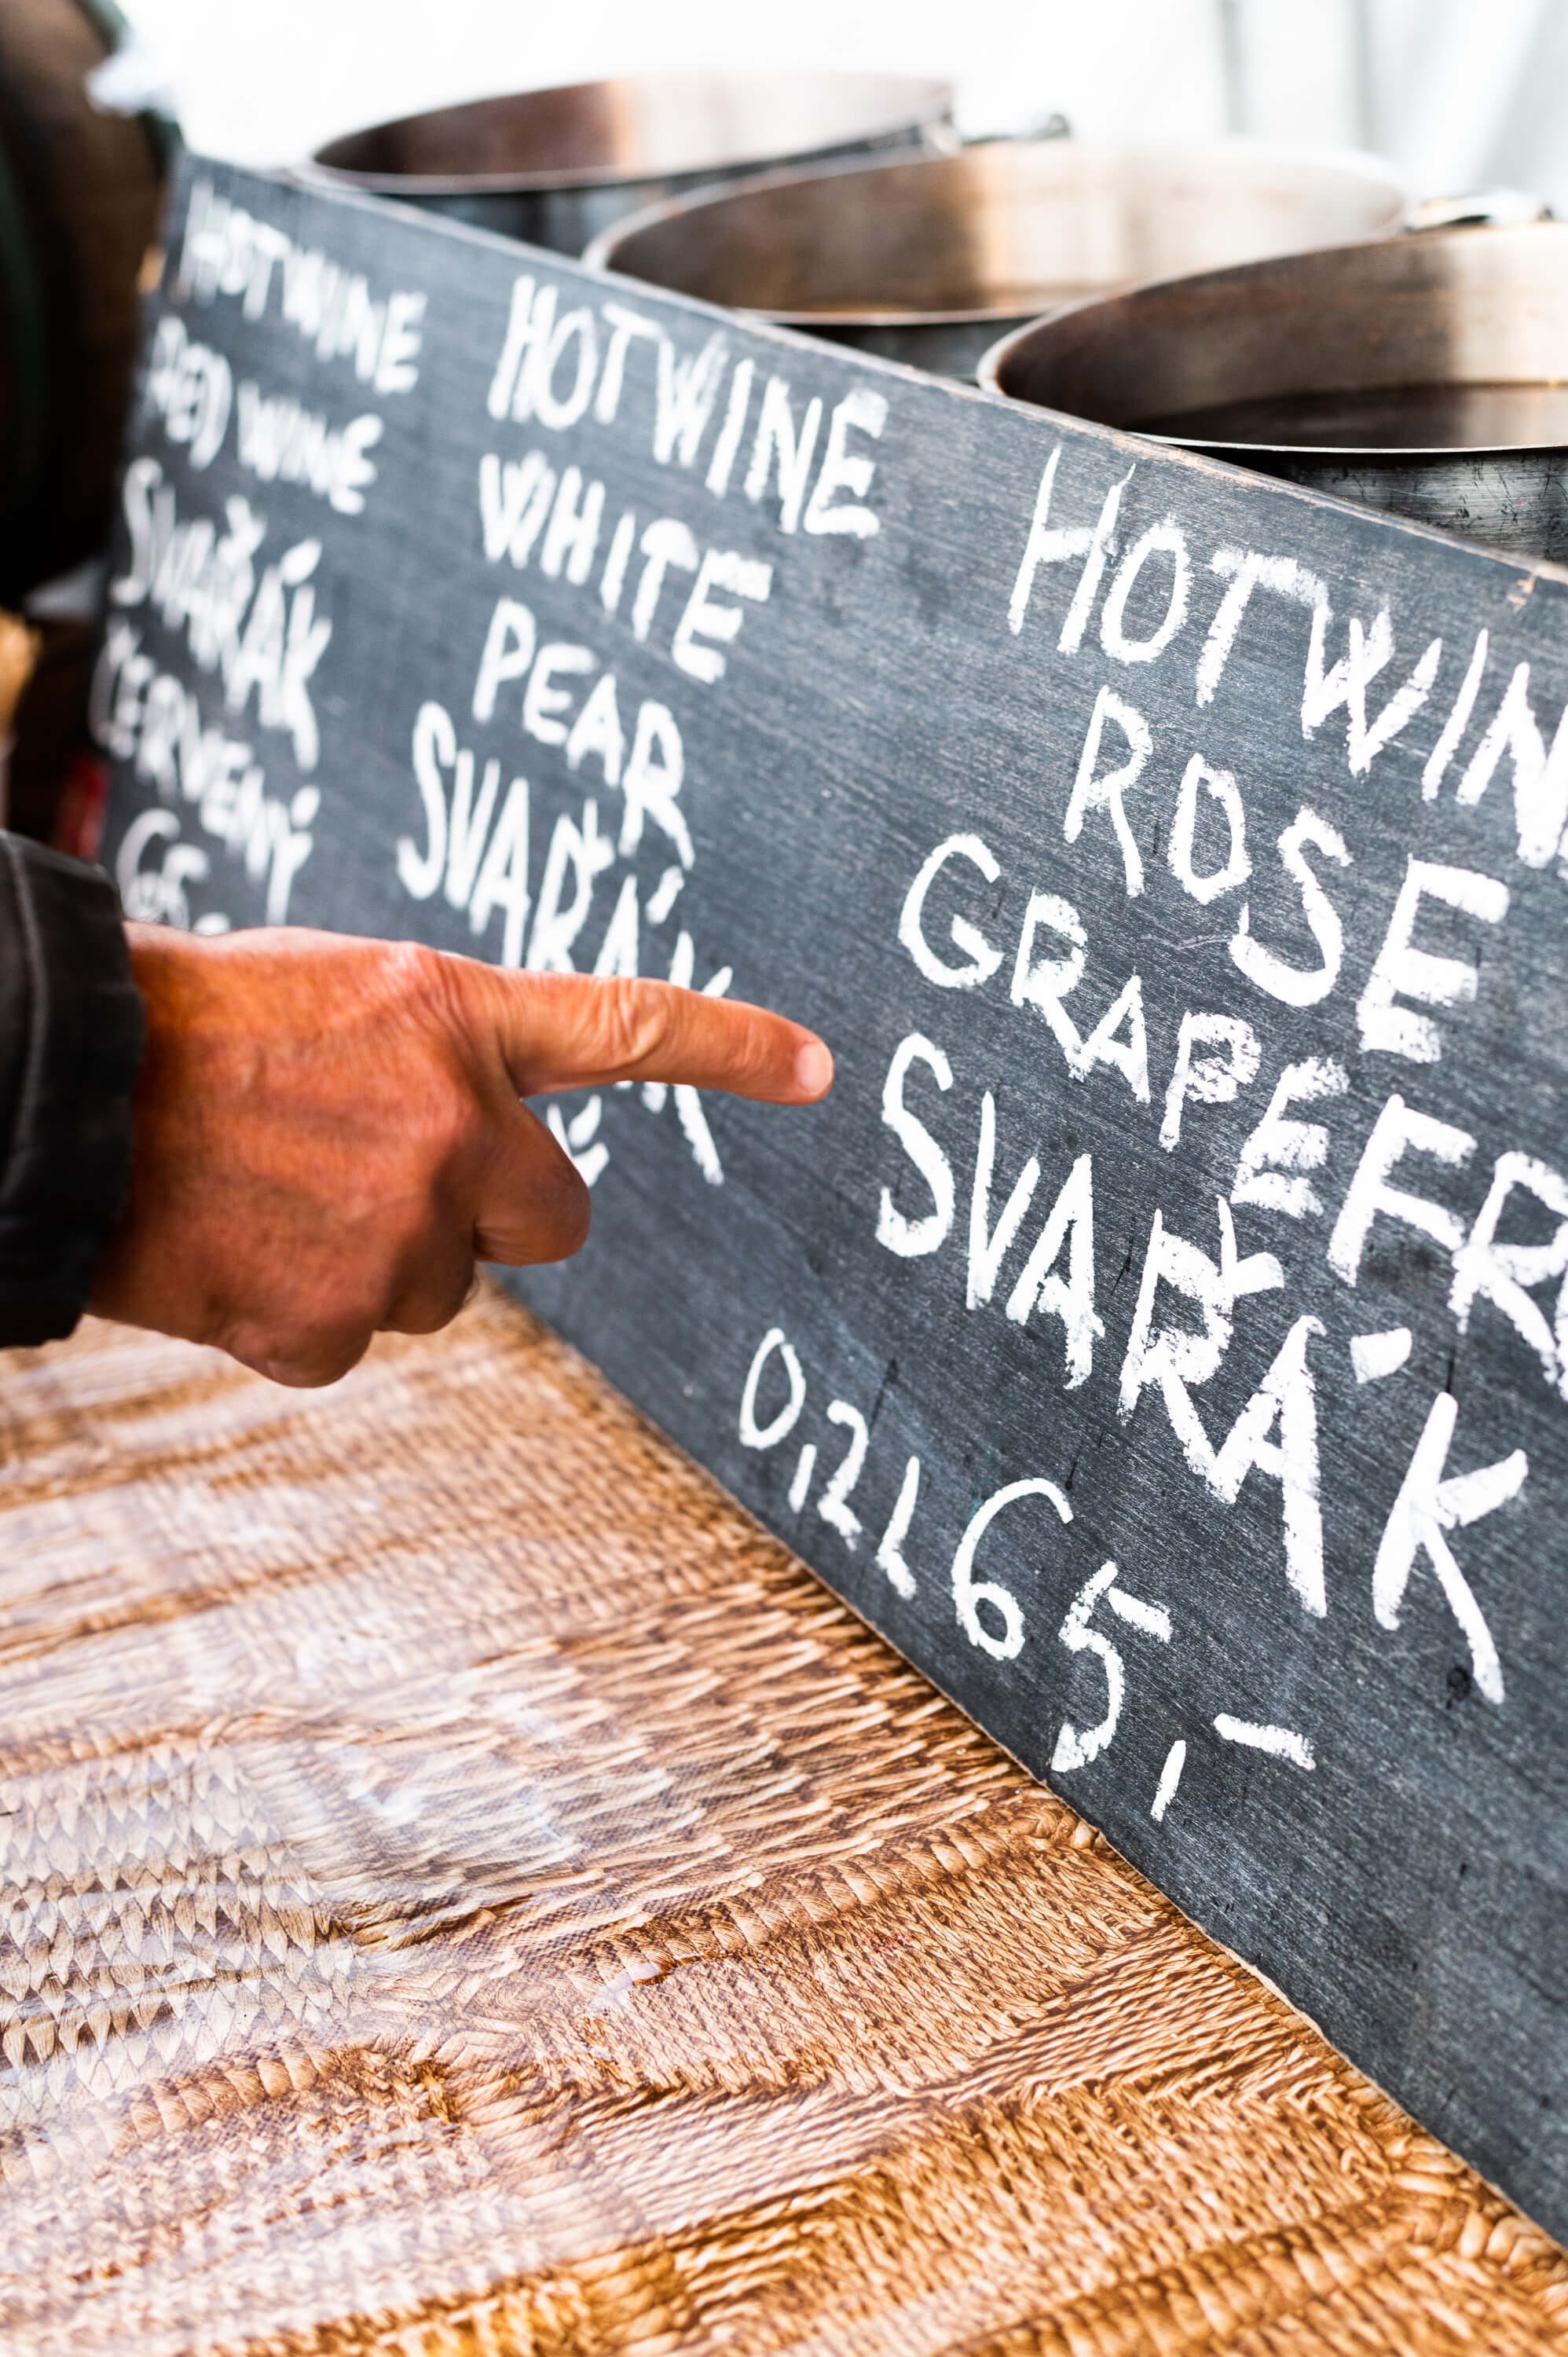 HOT WINE
RED WINE
SVAŘÁK
ČERVENÝ
HOT WINE
WHITE
PEAR
SVAŘÁK
HOT WIN
ROSE
GRAPEFR
SVAŘÁK
0,2L 65,-